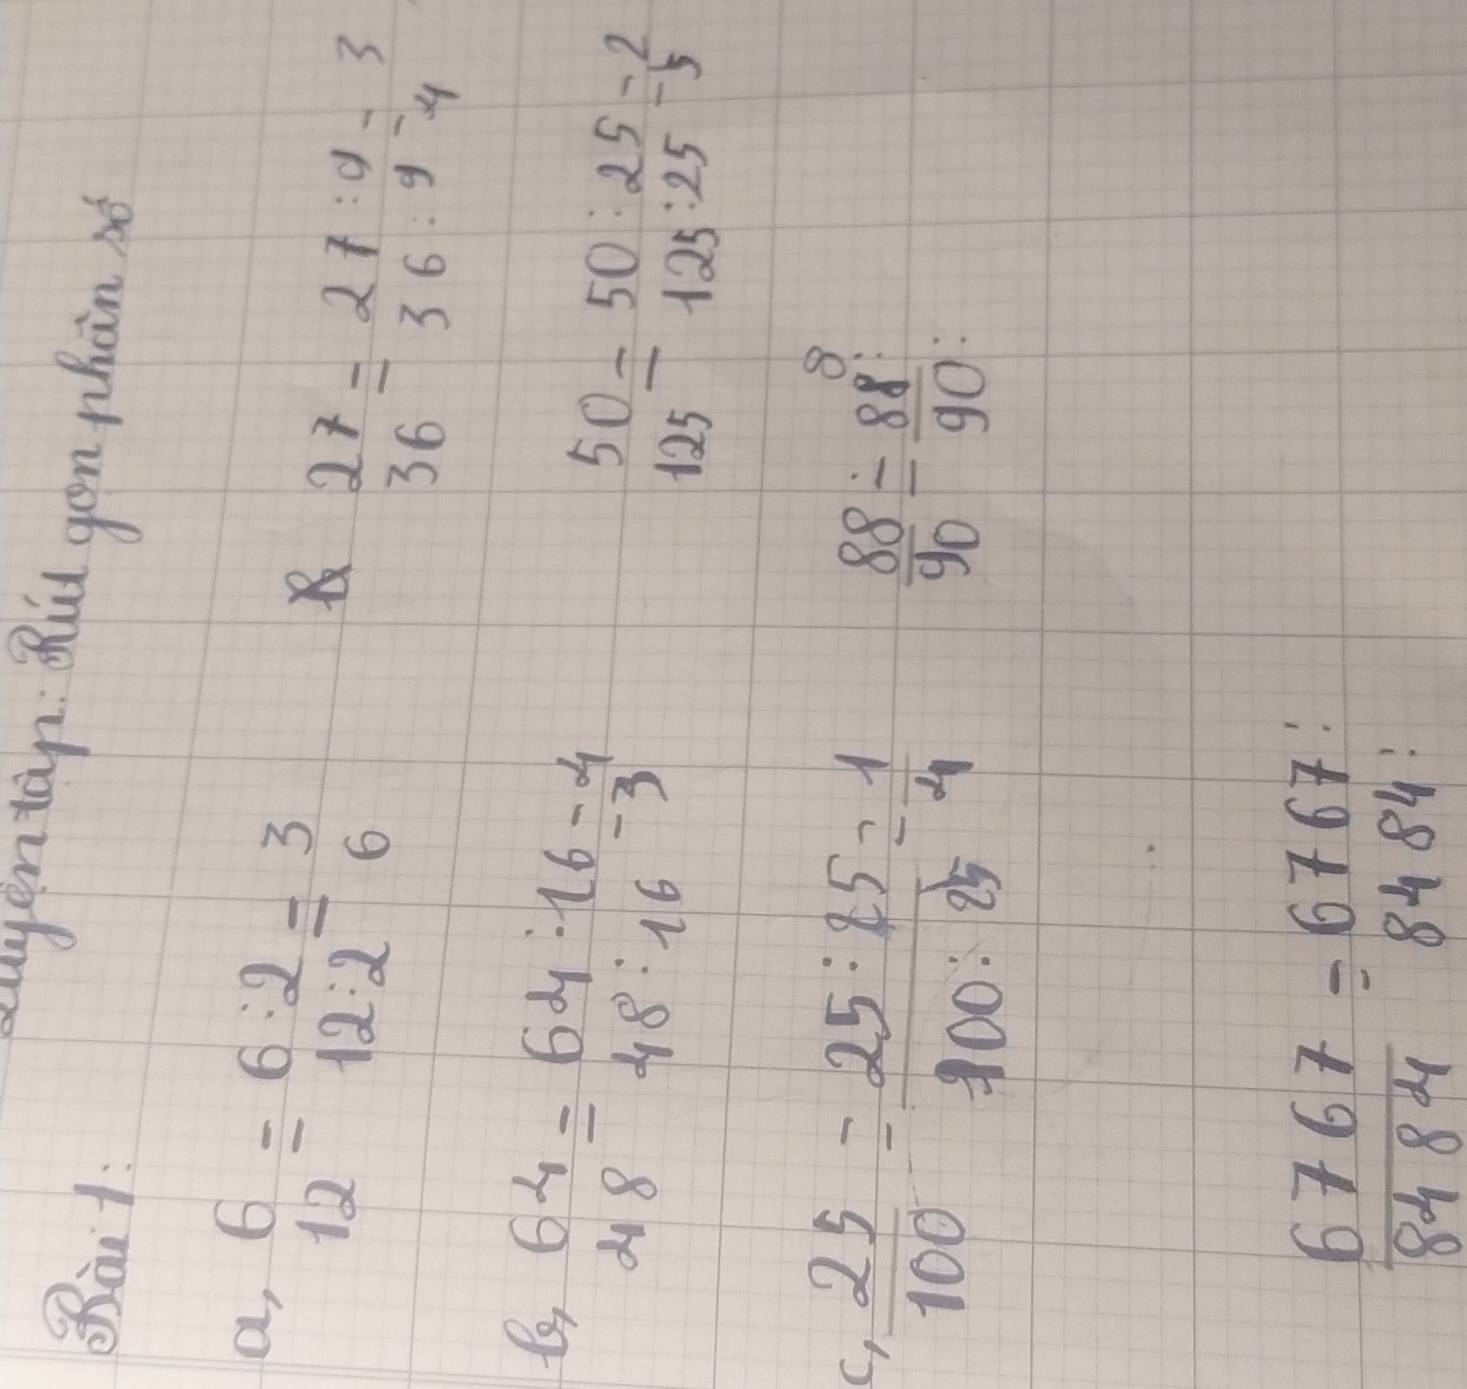 Luyện tập: Rút gọn phân số
Bài 1:
a, 6/12 = 6:2/12:2 = 3/6
27/36 = 27:9/36:9 = 3/4
b, 64/48 = 64:16/48:16 = 4/3
50/125 = 50:25/125:25 = 2/5
c, 25/100 = 25:25/100:25 = 1/4
88/90 = 88:/90:
8
6767/8484 = 6767:/8484: